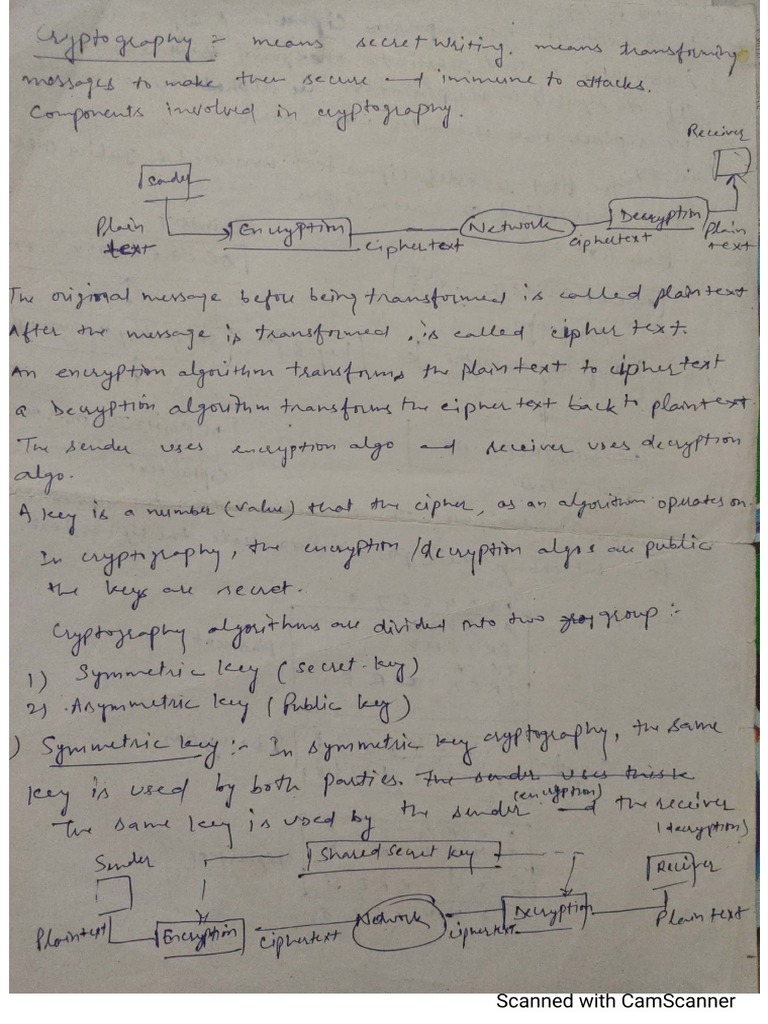 Cryptography = means secret writing. means transforming
messages to make them secure and immune to attacks.
Components involved in cryptography.
Receiver
Sender
Plain text
Encryption
ciphertext
Network
ciphertext
Decryption
Plain text
The original message before being transformed is called plaintext
After the message is transformed, is called cipher text.
An encryption algorithm transforms the plaintext to ciphertext
a Decryption algorithm transforms the ciphertext back to plaintext.
The sender uses encryption algo and receiver uses decryption
algo.
A key is a number (value) that the cipher, as an algorithm operates on.
In cryptography, the encryption/decryption algos are public
the keys are secret.
Cryptography algorithms are divided into two group :-
1) Symmetric key (secret-key)
2) Asymmetric key (Public key)
) Symmetric key :- In symmetric key cryptography, the same
key is used by both parties. The sender uses this k
The same key is used by the sender (encryption) and the receiver
(decryption)
Sender
Shared secret key
Reciver
Plaintext
Encryption
ciphertext
Network
ciphertext
Decryption
Plaintext
Scanned with CamScanner